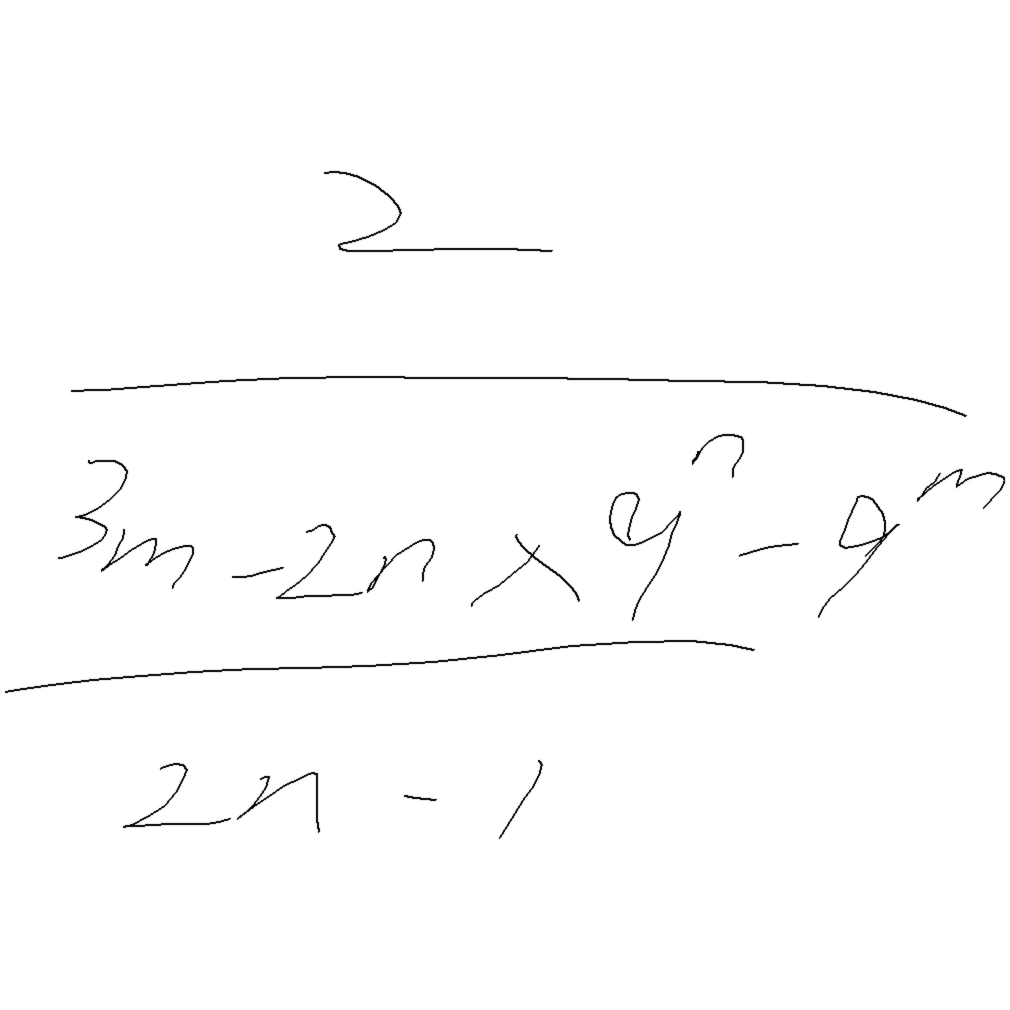 2
3m - 2n x 9ⁿ - 9ᵐ
2n - 1